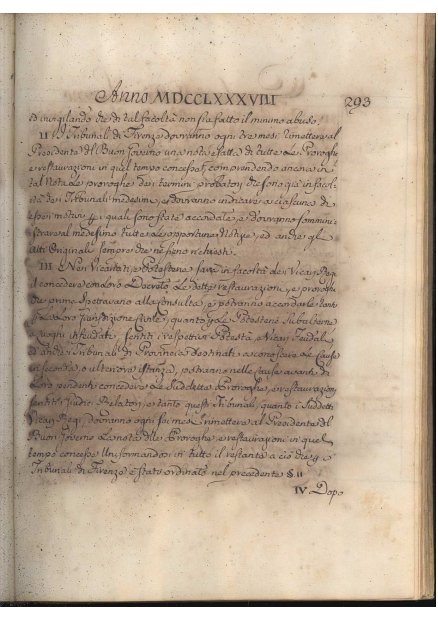 Anno MDCCLXXXVIII 293
ed invigilando che di tal facoltà non sia fatto il minimo abuso.
II. I Tribunali di Firenze dovranno ogni tre mesi rimettere al
Presidente del Buon Governo una nota esatta di tutte le Proroghe
e restaurazioni in quel tempo concesse, comprendendo ancora in
tal Nota le proroghe dei termini probatori che sono già in facol-
tà dei Tribunali medesimi, e dovranno indicare a ciascuna di
esse i motivi quali sono state accordate, e dovranno sommini-
strare al medesimo tutte le opportune Notizie, ed anche gli
Atti Originali sempre che ne sieno richiesti.
III. Nei Vicariati, e Potesterie sarà in facoltà dei Vicari Regi
il concedere con loro Decreto le dette restaurazioni, e proroghe
che prima spettavano alla Consulta, e potranno accordarle tanto
la loro Jurisdizione quanto le Potesterie Subalterne
e Luoghi infeudati, sentiti i respettivi Potestà, e Vicari Feudali,
ed anche i Tribunali di Provincia destinati a conoscere le Cause
in seconda, o ulteriore istanza, potranno nelle Cause avanti di
Loro pendenti concedere le suddette Proroghe, e restaurazioni
sentiti i Giudici Relatori, e tanto questi Tribunali, quanto i suddetti
Vicari Regi dovranno ogni sei mesi rimettere al Presidente del
Buon Governo la nota delle Proroghe, e restaurazioni in quel
tempo concesse Uniformandosi in tutto il restante a ciò che
Tribunali di Firenze è stato ordinato nel precedente §. II
IV Dopo